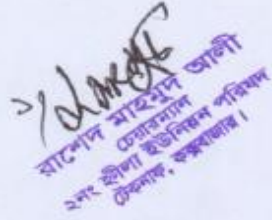 রাশেদ মাহমুদ আলী
চেয়ারম্যান
২নং হ্নীলা ইউনিয়ন পরিষদ
টেকনাফ, কক্সবাজার।